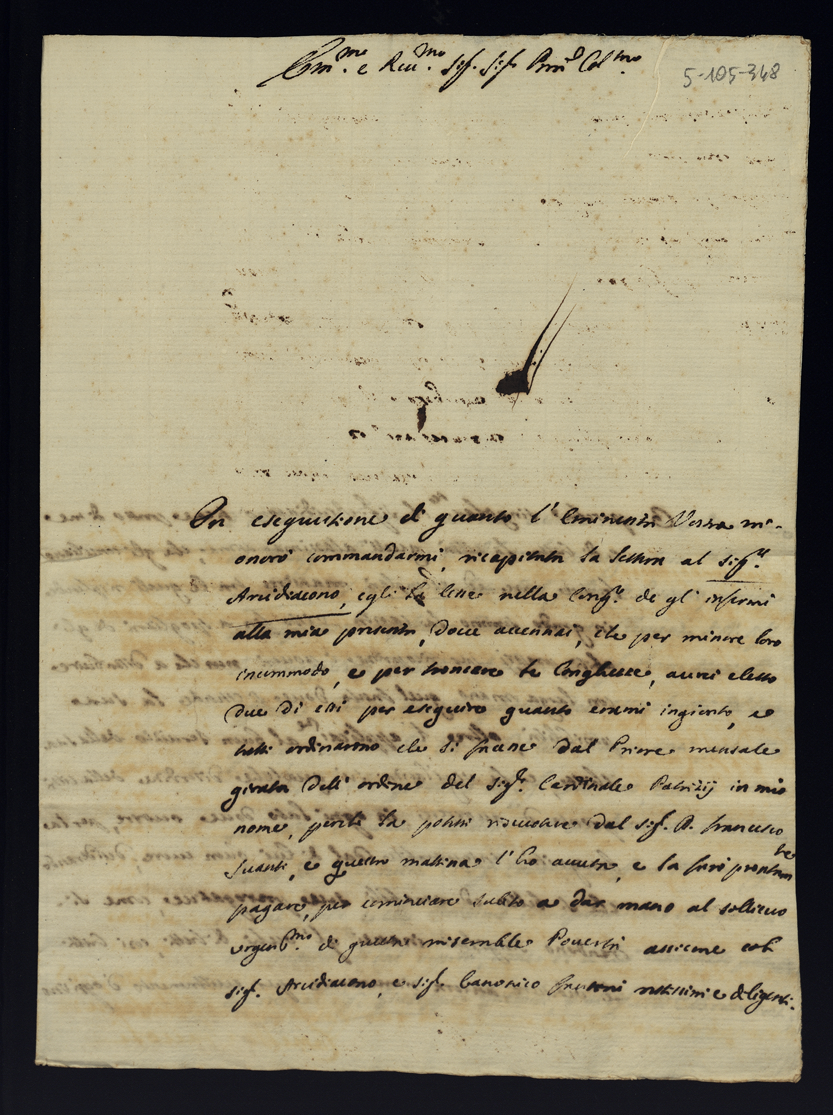 Em.mo e Rev.mo Sig. Sig. Pron. Col.mo
5-105-348
In esequutione di quanto l'Eminenza Vostra mi
onorò commandarmi, ricapitata la lettera al Sig.r
Arcidiacono, egli la lesse nella Cong.e de gl'infermi
alla mia presenza, dove accennai, che per minore loro
incommodo, e per troncare le lunghezze, avevi eletto
due di essi per eseguire quanto erami ingionto, e
tutti ordinarono che si facesse dal Priore mensale
girata dell'ordine del Sig.r Cardinale Patrizij in mio
nome, perché la potessi riscuotere dal Sig. D. Francesco
Suanti, e questa mattina l'ho avuta, e la farò prontam.te
pagare, per cominciare subito a dar mano al sollievo
urgent.mo di questa miserabile Povertà assieme col
Sig. Arcidiacono, e Sig. Canonico notissimi e diligenti.